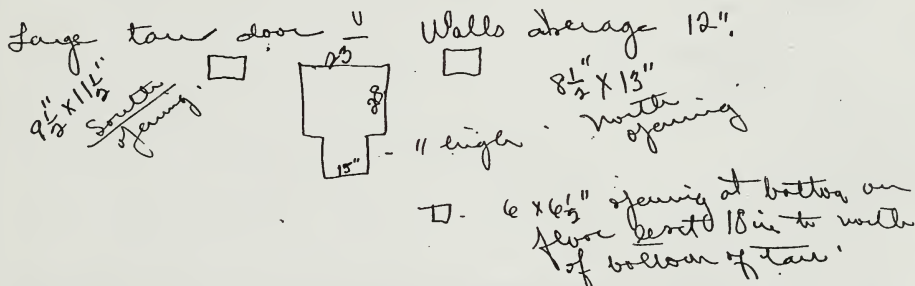 Large tau door Walls average 12".
9½" x 11½"
South
opening.
23
28
15"
- " high
8½" x 13"
north
opening
6 x 6½" opening at bottom on
floor level 18 in to north
of bottom of tau.